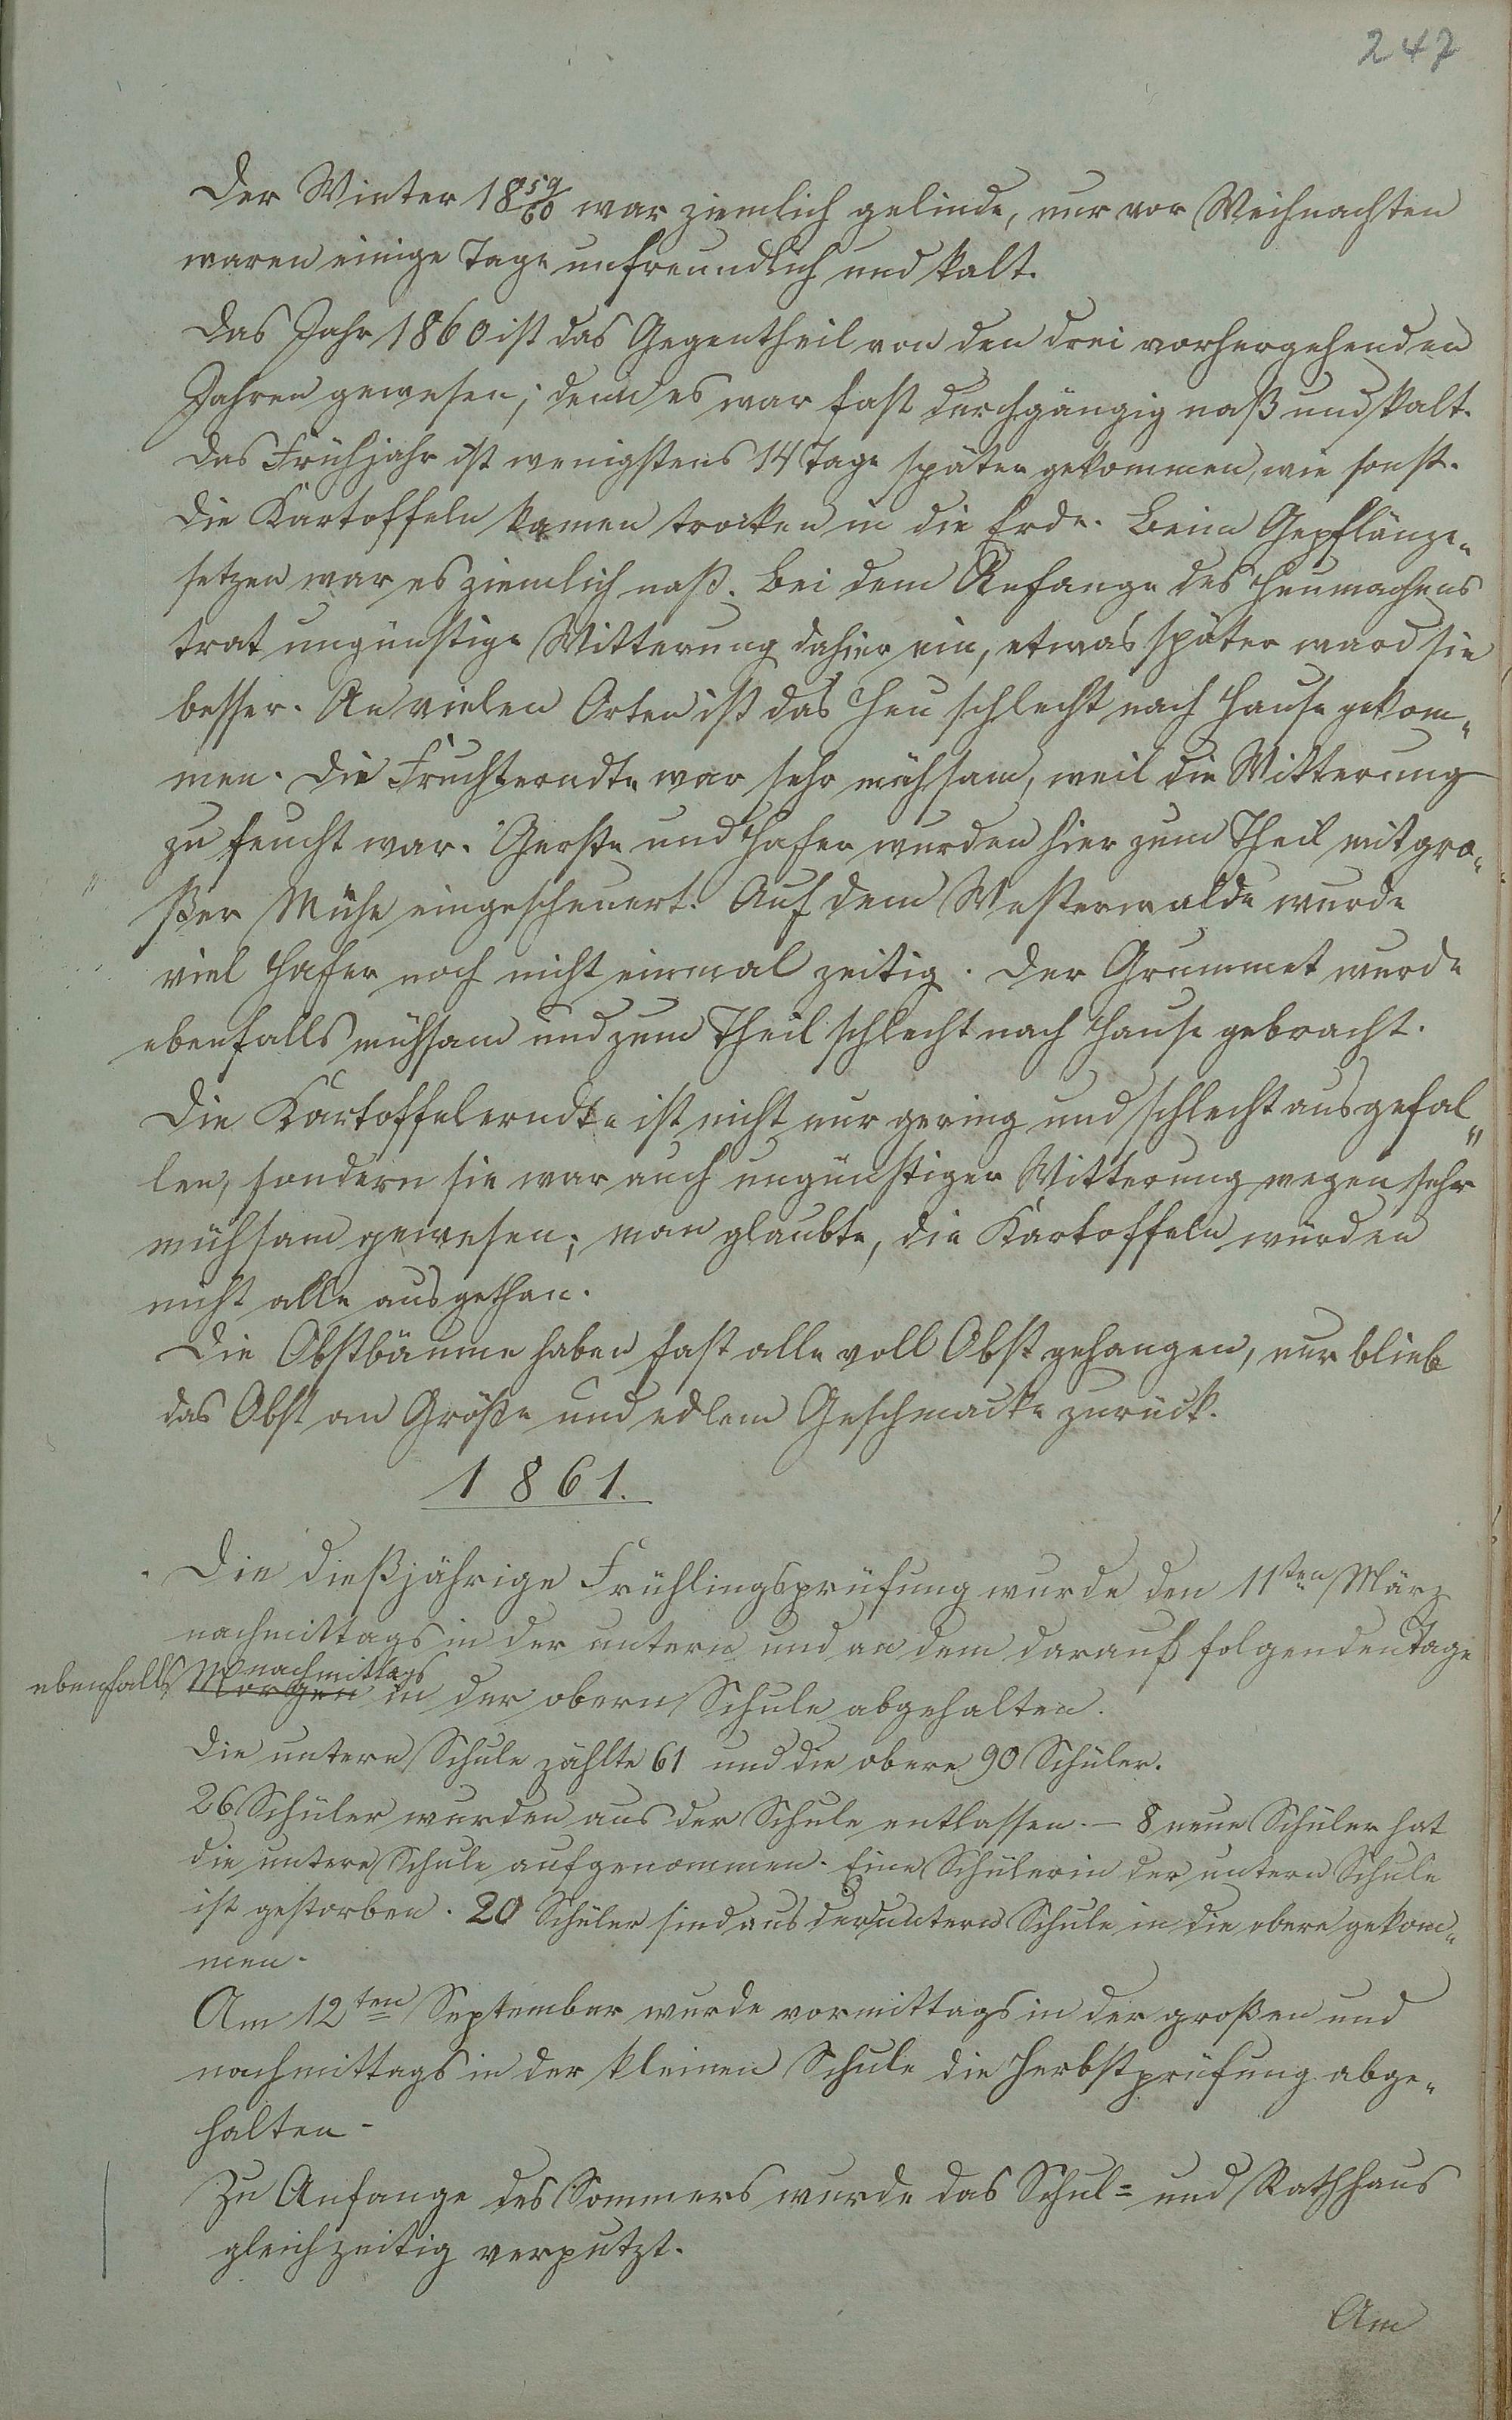 247
Der Winter 18 59/60 war ziemlich gelinde, nur vor Weihnachten
waren einige Tage unfreundlich und kalt.
Das Jahr 1860 ist das Gegentheil von den drei vorhergehenden
Jahren gewesen; denn es war fast durchgängig naß und kalt.
Das Frühjahr ist wenigstens 14 Tage später gekommen, wie sonst.
Die Kartoffeln kamen trocken in die Erde. Beim Gepflänze„
setzen war es ziemlich naß. Bei dem Anfange des Heumachens
trat ungünstige Witterung dahier ein, etwas später ward sie
besser. An vielen Orten ist das Heu schlecht nach Hause gekom„
men. Die Fruchterndte war sehr mühsam, weil die Witterung
zu feucht war. Gerste und Hafer wurden hier zum Theil mit gro„
ßer Mühe eingescheuert. Auf dem Westerwalde wurde
viel Hafer noch nicht einmal zeitig. Der Grummet wurde
ebenfalls mühsam und zum Theil schlecht nach Hause gebracht.
Die Kartoffelerndte ist nicht nur gering und schlecht ausgefal„
len, sondern sie war auch ungünstiger Witterung wegen sehr
mühsam gewesen; man glaubte, die Kartoffeln würden
nicht alle ausgethan.
Die Obstbäume haben fast alle voll Obst gehangen, nur blieb
das Obst an Größe und edlem Geschmacke zurück.
1861.
Die dießjährige Frühlingsprüfung wurde den 11ten März
nachmittags in der untern und an dem darauf folgenden Tage
ebenfalls Morgen nachmittags in der obern Schule abgehalten.
Die untere Schule zählte 61 und die obere 90 Schüler.
26 Schüler wurden aus der Schule entlassen. – 8 neue Schüler hat
die untere Schule aufgenommen. Eine Schülerin der untern Schule
ist gestorben. 20 Schüler sind aus der untern Schule in die obere gekom„
men.
Am 12ten September wurde vormittags in der großen und
nachmittags in der kleinen Schule die Herbstprüfung abge„
halten.
Zu Anfange des Sommers wurde das Schul= und Rathhaus
gleichzeitig verputzt.
Am